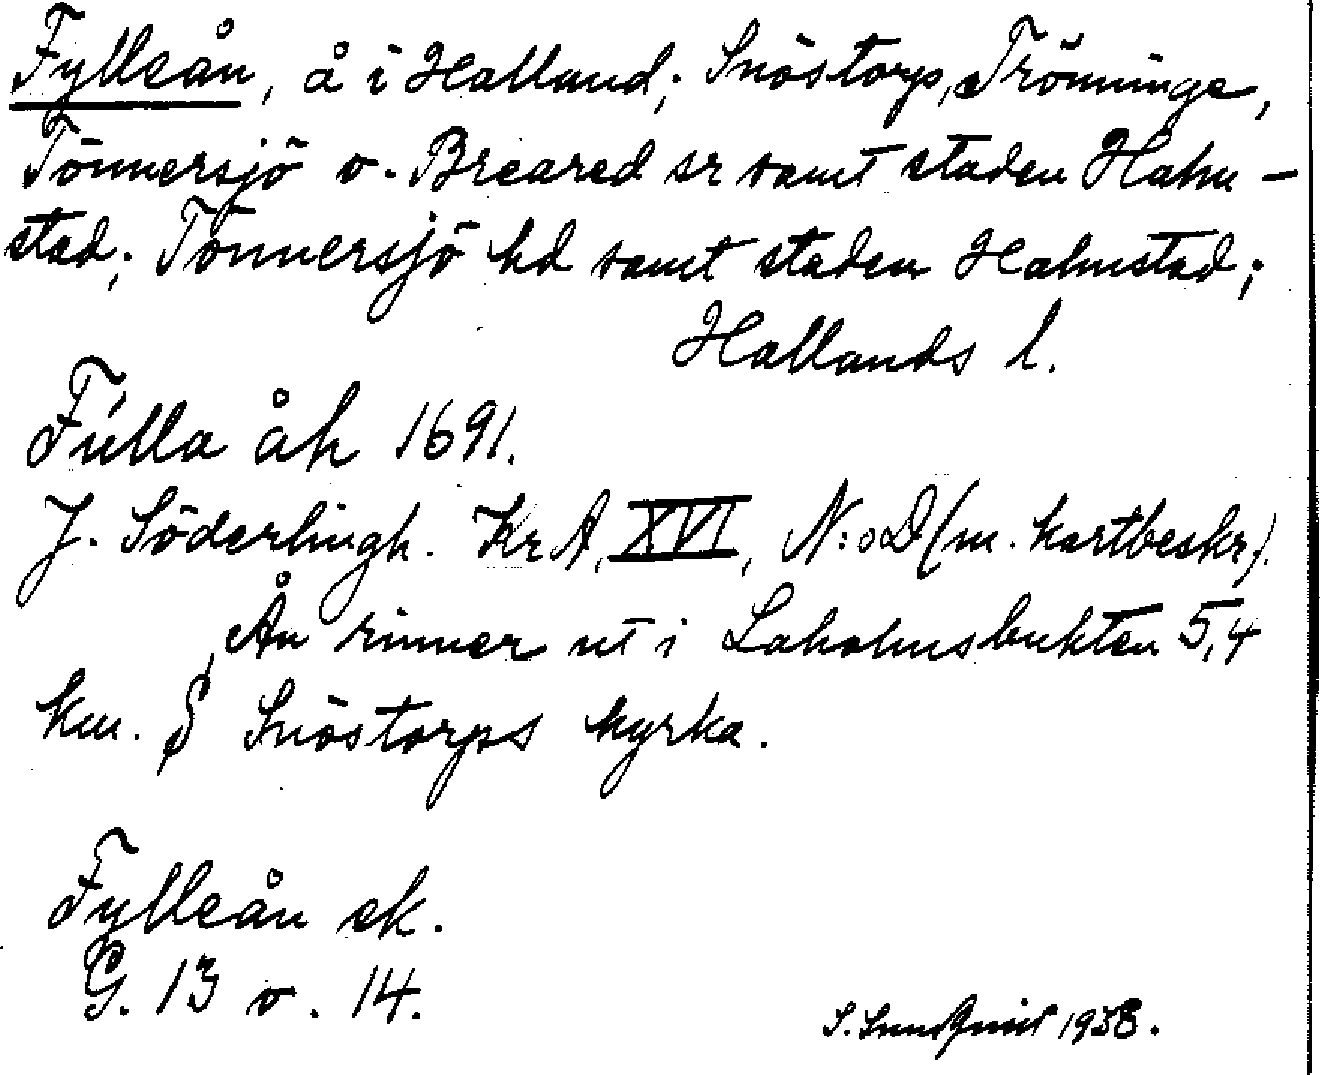 Fylleån, å i Halland; Snöstorp, Trönninge,
Tönnersjö o. Breared sr samt staden Halm-
stad; Tönnersjö hd samt staden Halmstad;
Hallands l.
Fülla åh 1691.
J. Söderlingh. KrA, XVI, N:o D (m. kartbeskr.).
Ån rinner ut i Laholmsbukten 5,4
km. S Snöstorps kyrka.
Fylleån ek.
G. 13 o. 14.
S. Sundqvist 1938.